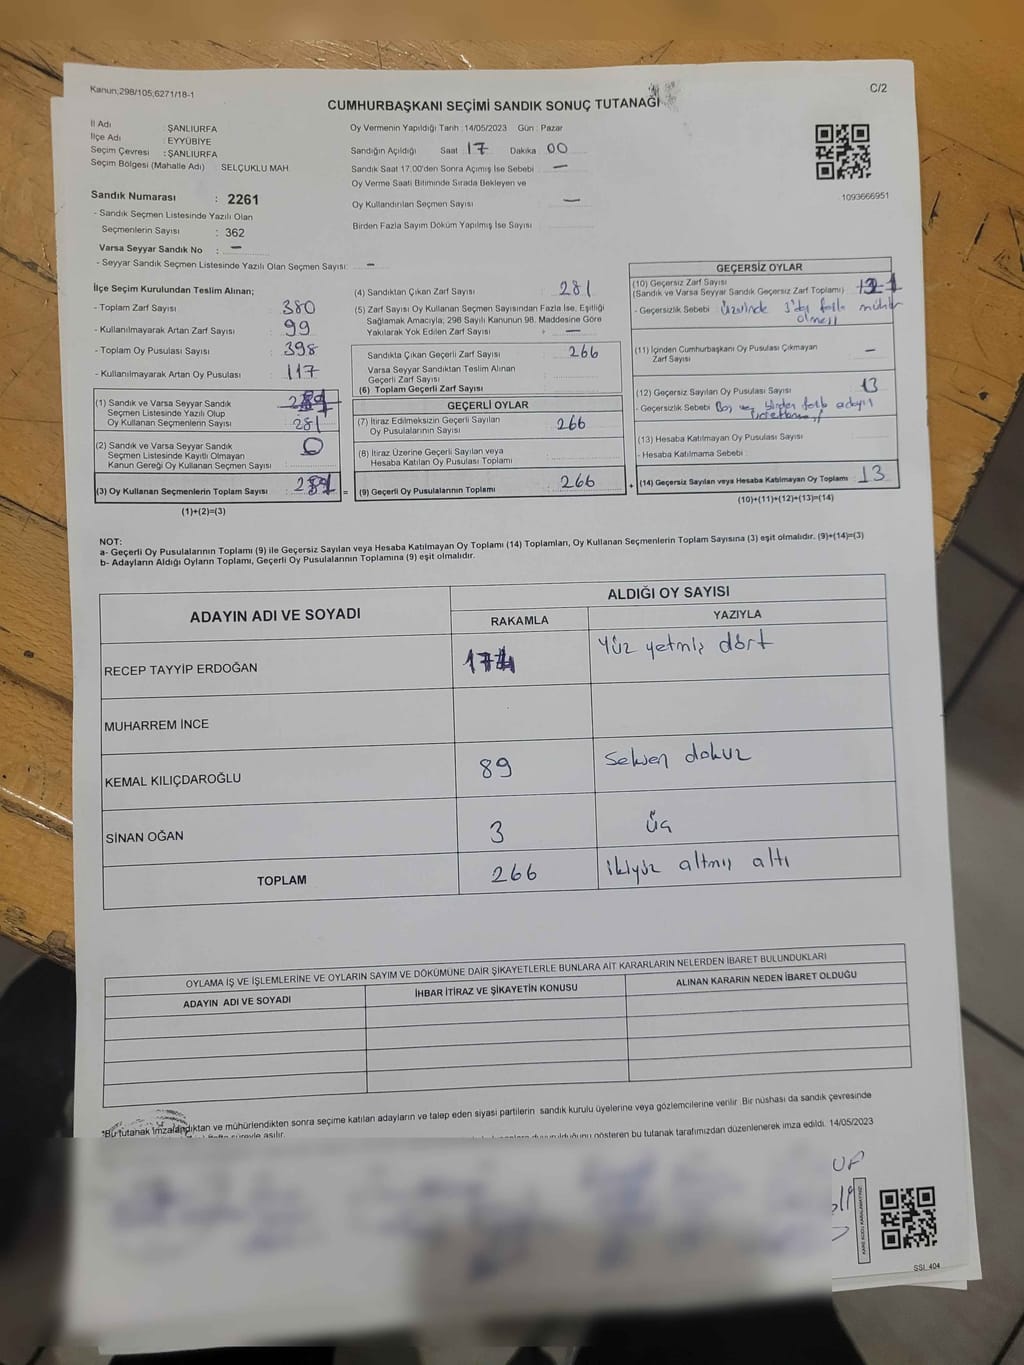 Kanun;298/105;6271/18-1
C/2
CUMHURBAŞKANI SEÇİMİ SANDIK SONUÇ TUTANAĞI
İl Adı : ŞANLIURFA
İlçe Adı : EYYÜBİYE
Seçim Çevresi : ŞANLIURFA
Seçim Bölgesi (Mahalle Adı) SELÇUKLU MAH.
Oy Vermenin Yapıldığı Tarih :14/05/2023 Gün : Pazar
Sandığın Açıldığı Saat 17 Dakika 00
Sandık Saat 17.00'den Sonra Açımış İse Sebebi —
Oy Verme Saati Bitiminde Sırada Bekleyen ve
Oy Kullandırılan Seçmen Sayısı —
Birden Fazla Sayım Döküm Yapılmış İse Sayısı
1093666951
Sandık Numarası : 2261
- Sandık Seçmen Listesinde Yazılı Olan
Seçmenlerin Sayısı : 362
Varsa Seyyar Sandık No : —
- Seyyar Sandık Seçmen Listesinde Yazılı Olan Seçmen Sayısı: —
İlçe Seçim Kurulundan Teslim Alınan;
- Toplam Zarf Sayısı : 380
- Kullanılmayarak Artan Zarf Sayısı : 99
- Toplam Oy Pusulası Sayısı : 398
- Kullanılmayarak Artan Oy Pusulası : 117
(1) Sandık ve Varsa Seyyar Sandık
Seçmen Listesinde Yazılı Olup
Oy Kullanan Seçmenlerin Sayısı : 281
(2) Sandık ve Varsa Seyyar Sandık
Seçmen Listesinde Kayıtlı Olmayan
Kanun Gereği Oy Kullanan Seçmen Sayısı : 0
(3) Oy Kullanan Seçmenlerin Toplam Sayısı =
(1)+(2)=(3)
(4) Sandıktan Çıkan Zarf Sayısı : 281
(5) Zarf Sayısı Oy Kullanan Seçmen Sayısından Fazla İse, Eşitliği
Sağlamak Amacıyla; 298 Sayılı Kanunun 98. Maddesine Göre
Yakılarak Yok Edilen Zarf Sayısı —
Sandıkta Çıkan Geçerli Zarf Sayısı : 266
Varsa Seyyar Sandıktan Teslim Alınan
Geçerli Zarf Sayısı
(6) Toplam Geçerli Zarf Sayısı
GEÇERLİ OYLAR
(7) İtiraz Edilmeksizin Geçerli Sayılan
Oy Pusulalarının Sayısı : 266
(8) İtiraz Üzerine Geçerli Sayılan veya
Hesaba Katılan Oy Pusulası Toplamı
(9) Geçerli Oy Pusulalarının Toplamı : 266 +
GEÇERSİZ OYLAR
(10) Geçersiz Zarf Sayısı
(Sandık ve Varsa Seyyar Sandık Geçersiz Zarf Toplamı)
- Geçersizlik Sebebi üzerinde 3'den fazla mühür
olması
(11) İçinden Cumhurbaşkanı Oy Pusulası Çıkmayan
Zarf Sayısı —
(12) Geçersiz Sayılan Oy Pusulası Sayısı 13
- Geçersizlik Sebebi Boş ve birden fazla adayın
(13) Hesaba Katılmayan Oy Pusulası Sayısı
- Hesaba Katılmama Sebebi :
(14) Geçersiz Sayılan veya Hesaba Katılmayan Oy Toplamı : 13
(10)+(11)+(12)+(13)=(14)
NOT:
a- Geçerli Oy Pusulalarının Toplamı (9) ile Geçersiz Sayılan veya Hesaba Katılmayan Oy Toplamı (14) Toplamları, Oy Kullanan Seçmenlerin Toplam Sayısına (3) eşit olmalıdır. (9)+(14)=(3)
b- Adayların Aldığı Oyların Toplamı, Geçerli Oy Pusulalarının Toplamına (9) eşit olmalıdır.
ADAYIN ADI VE SOYADI
ALDIĞI OY SAYISI
RAKAMLA YAZIYLA
RECEP TAYYİP ERDOĞAN 174 Yüz yetmiş dört
MUHARREM İNCE
KEMAL KILIÇDAROĞLU 89 Seksen dokuz
SİNAN OĞAN 3 üç
TOPLAM 266 ikiyüz altmış altı
OYLAMA İŞ VE İŞLEMLERİNE VE OYLARIN SAYIM VE DÖKÜMÜNE DAİR ŞİKAYETLERLE BUNLARA AİT KARARLARIN NELERDEN İBARET BULUNDUKLARI
ADAYIN ADI VE SOYADI İHBAR İTİRAZ VE ŞİKAYETİN KONUSU ALINAN KARARIN NEDEN İBARET OLDUĞU
*Bu tutanak imzalandıktan ve mühürlendikten sonra seçime katılan adayların ve talep eden siyasi partilerin sandık kurulu üyelerine veya gözlemcilerine verilir. Bir nüshası da sandık çevresinde
gösteren bu tutanak tarafımızdan düzenlenerek imza edildi. 14/05/2023
SSI_404